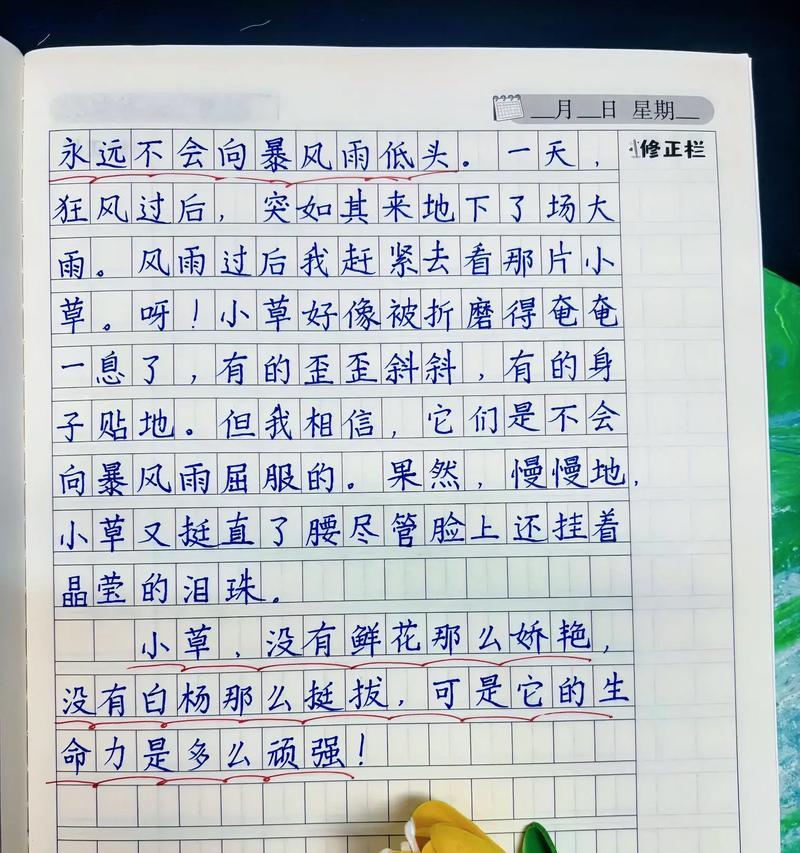 __月__日 星期__
修正栏
永远不会向暴风雨低头。一天，
狂风过后，突如其来地下了场大
雨。风雨过后我赶紧去看那片小
草。呀！小草好像被折磨得奄奄
一息了，有的歪歪斜斜，有的身
子贴地。但我相信，它们是不会
向暴风雨屈服的。果然，慢慢地，
小草又挺直了腰尽管脸上还挂着
晶莹的泪珠。
小草，没有鲜花那么娇艳，
没有白杨那么挺拔，可是它的生
命力是多么顽强！